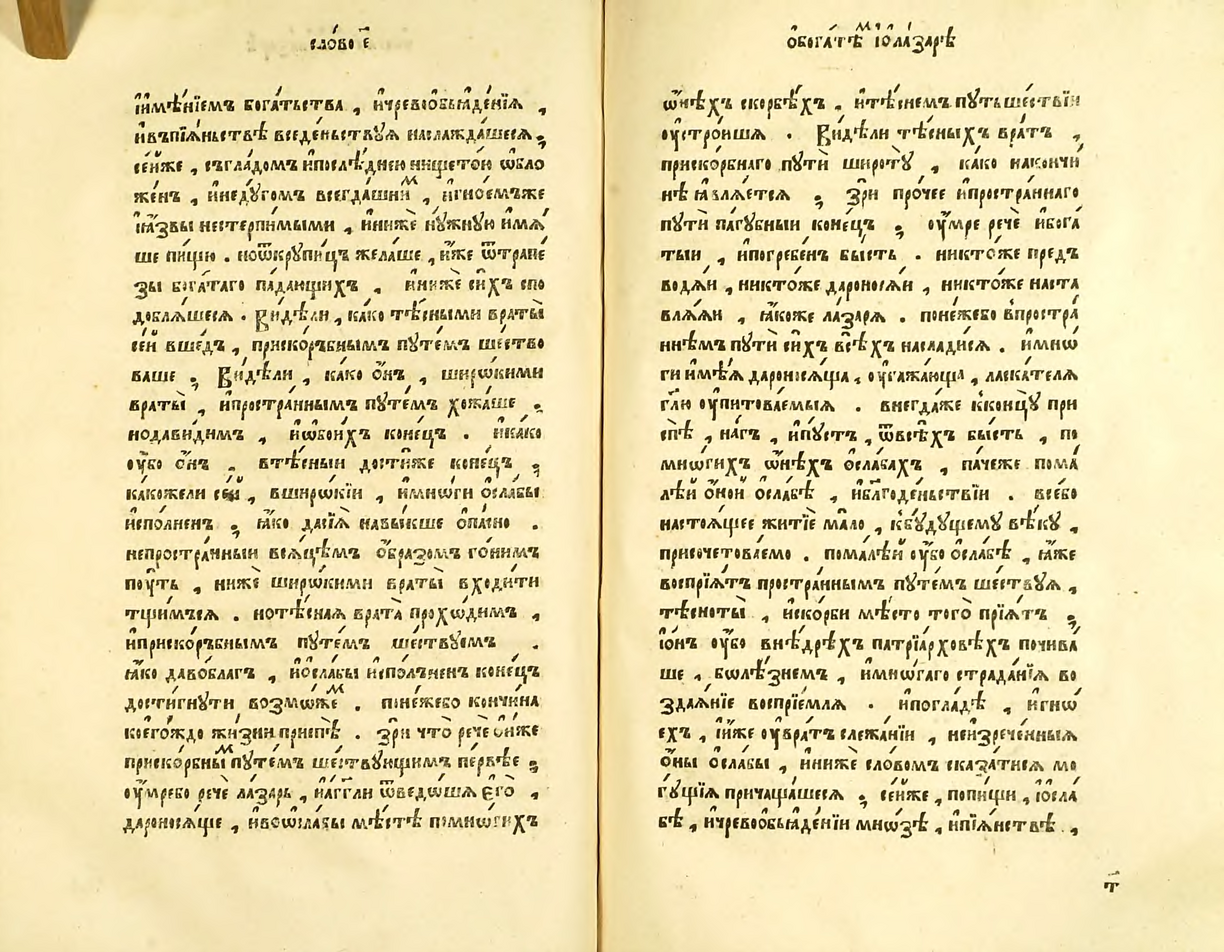 сло́во є҃
і҆имѣ́нїемъ бога́тьства , и҆чревоѡб̾ꙗде́нїѧ ,
и҆въпїѧ́ньствѣ вседе́ньствꙋѧ наслажда́шесѧ ;
се́йже , съгла́домъ и҆послѣ́днею нището́ю ѡ҆бло
же́нъ , и҆неду́гомъ всегда́шниⷨ , и҆гное́мъже
ꙗ҆́звы нестерпи́мыми , и҆нижѐ нꙋ́жнꙋю и҆мѧ́
ше пи́щю . ноѿкрꙋпи́цъ жела́ше , и҆́же ѿтрапе
зы бога́таго па́дающихъ , и҆нижѐ си́хъ спо
доблѧ́шесѧ . Ви́дѣли , ка́ко тѣ́сными враты̀
се́й вше́дъ , приско́ръбнымъ пꙋте́мъ ше́ство
ваше ; Ви́дѣли , ка́ко ѻ҆́нъ , широ́кими
враты̀ , и҆простра́ннымъ пꙋте́мъ хожа́ше ;
нода́видимъ , и҆ѡбои́хъ коне́цъ . и҆ка́ко
ѹ҆́бо ѻ҆́нъ , втѣ́сныи дости́же коне́цъ ;
ка́кожели се́й , вширѡ́кїи , и҆мнѡ́ги ѻ҆сла́бы
и҆спо́лненъ ; ꙗ҆́ко дасїѧ̀ навы́кше ѻ҆па́сно .
непростра́нныи всѧ́цѣмъ ѻ҆́бразомъ го́нимъ
поу́ть , нижѐ широ́кими враты̀ входи́ти
тщи́мъсѧ . нотѣ́снаѧ врата̀ прохѡ́димъ ,
и҆приско́ръбнымъ пꙋте́мъ ше́ствꙋемъ .
ꙗ҆́ко давобла́гъ , и҆ѻ҆сла́бы и҆спо́лъненъ коне́цъ
дости́гнути возмо́жеⷨ . поне́жебо кончи́на
коего́ждо жи́зни приспѣ̀ . зрѝ что̀ речѐ ѻ҆и҆́же
приско́рбныⷨ пꙋте́мъ ше́ствꙋющимъ пе́рвѣе ;
ѹ҆́мребо речѐ ла́зарь , и҆а҆́гг҃ли ѿведо́шѧ є҆го̀ ,
дароно́сѧще , и҆всѡсла́бы мѣ́стѣ помно́гихъ
ѻ҆бога́тѣⷨ і҆ѻла́зарѣ
ѡ҆́нѣхъ ско́рбѣхъ , и҆тѣ́снемъ пꙋтьше́ствїи
ѹ҆стро́ишѧ . Ви́дѣли тѣ́сныхъ вра́тъ ,
приско́рбнаго пꙋтѝ широтꙋ̀ , ка́ко наконч́и
нѣ̀ ꙗ҆влѧ́етсѧ ; зрѝ про́чее и҆простра́ннаго
пꙋтѝ па́гꙋбныи коне́цъ ; ѹ҆́мре речѐ и҆бога́
тыи , и҆погребе́нъ бы́сть . никто́же пред̾
водѧ́и , никто́же дароносѧ́и , никто́же наста
влѧ́ѧи , ꙗ҆́коже ла́зарѧ . поне́жебо впростра́
ннѣмъ пꙋтѝ си́хъ всѣ́хъ наслади́сѧ . и҆мнѡ́
ги и҆мѣ́ѧ дароно́сѧща , ѹ҆гажа́юща , ласка́телѧ
гл҃ю ѹ҆питова́емыѧ . внегда́же кконцꙋ̀ при
спѣ̀ , на́гъ , и҆пꙋ́стъ , ѿвсѣ́хъ бы́сть , по
мнѡ́гихъ ѡ҆́нѣхъ ѻ҆сла́бахъ , па́чеже пома́
лѣй ѻ҆́ной ѻ҆сла́бѣ , и҆бл҃годе́ньствїи . всебо
настоѧ́щее житїѐ ма́ло , кбꙋ́дꙋщемꙋ вѣ́кꙋ ,
присочетова́емо . пома́лѣй ѹ҆́бо ѻ҆сла́бѣ , ꙗ҆́же
воспрїѧ́тъ простра́ннымъ пꙋте́мъ ше́ствꙋѧ ,
тѣсноты̀ , и҆ско́рби мѣ́сто того̀ прїѧ́тъ ;
і҆ѻ҆́нъ ѹ҆́бо внѣ́дрѣхъ патрїа́рховѣхъ почива́
ше , бѡлѣ́знемъ , и҆мнѡ́гаго страда́нїѧ во
здаѧ́нїе воспрїе́млѧ . и҆погла́дѣ , и҆гнѡ́
ехъ , и҆и҆́же ѹ҆вра́тъ слежа́нїи , неи҆зрече́нныѧ
ѻ҆́ны ѻ҆сла́бы , и҆нижѐ сло́вомъ сказа́тисѧ мо
гꙋ́щїѧ причаща́шесѧ ; се́йже , попи́щи , і҆ѻ҆сла́
бѣ , и҆чревоѡб̾ꙗде́нїи мнѡ́зѣ , и҆пїѧ́нствѣ ,
т҃